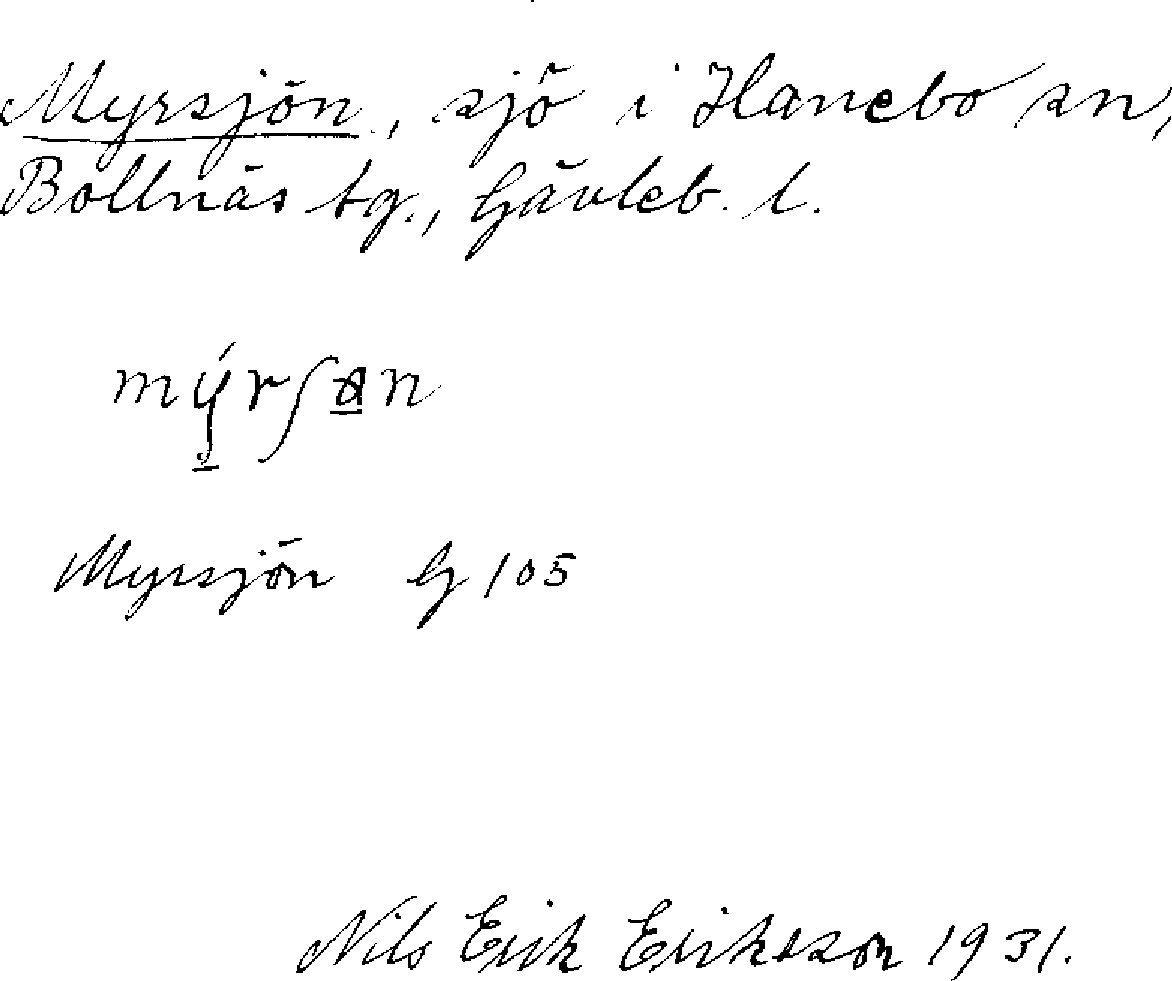 Myrsjön, sjö i Hanebo sn,
Bollnäs tg., Gävleb. l.
Myrsjön G 105
Nils Erik Eriksson 1931.